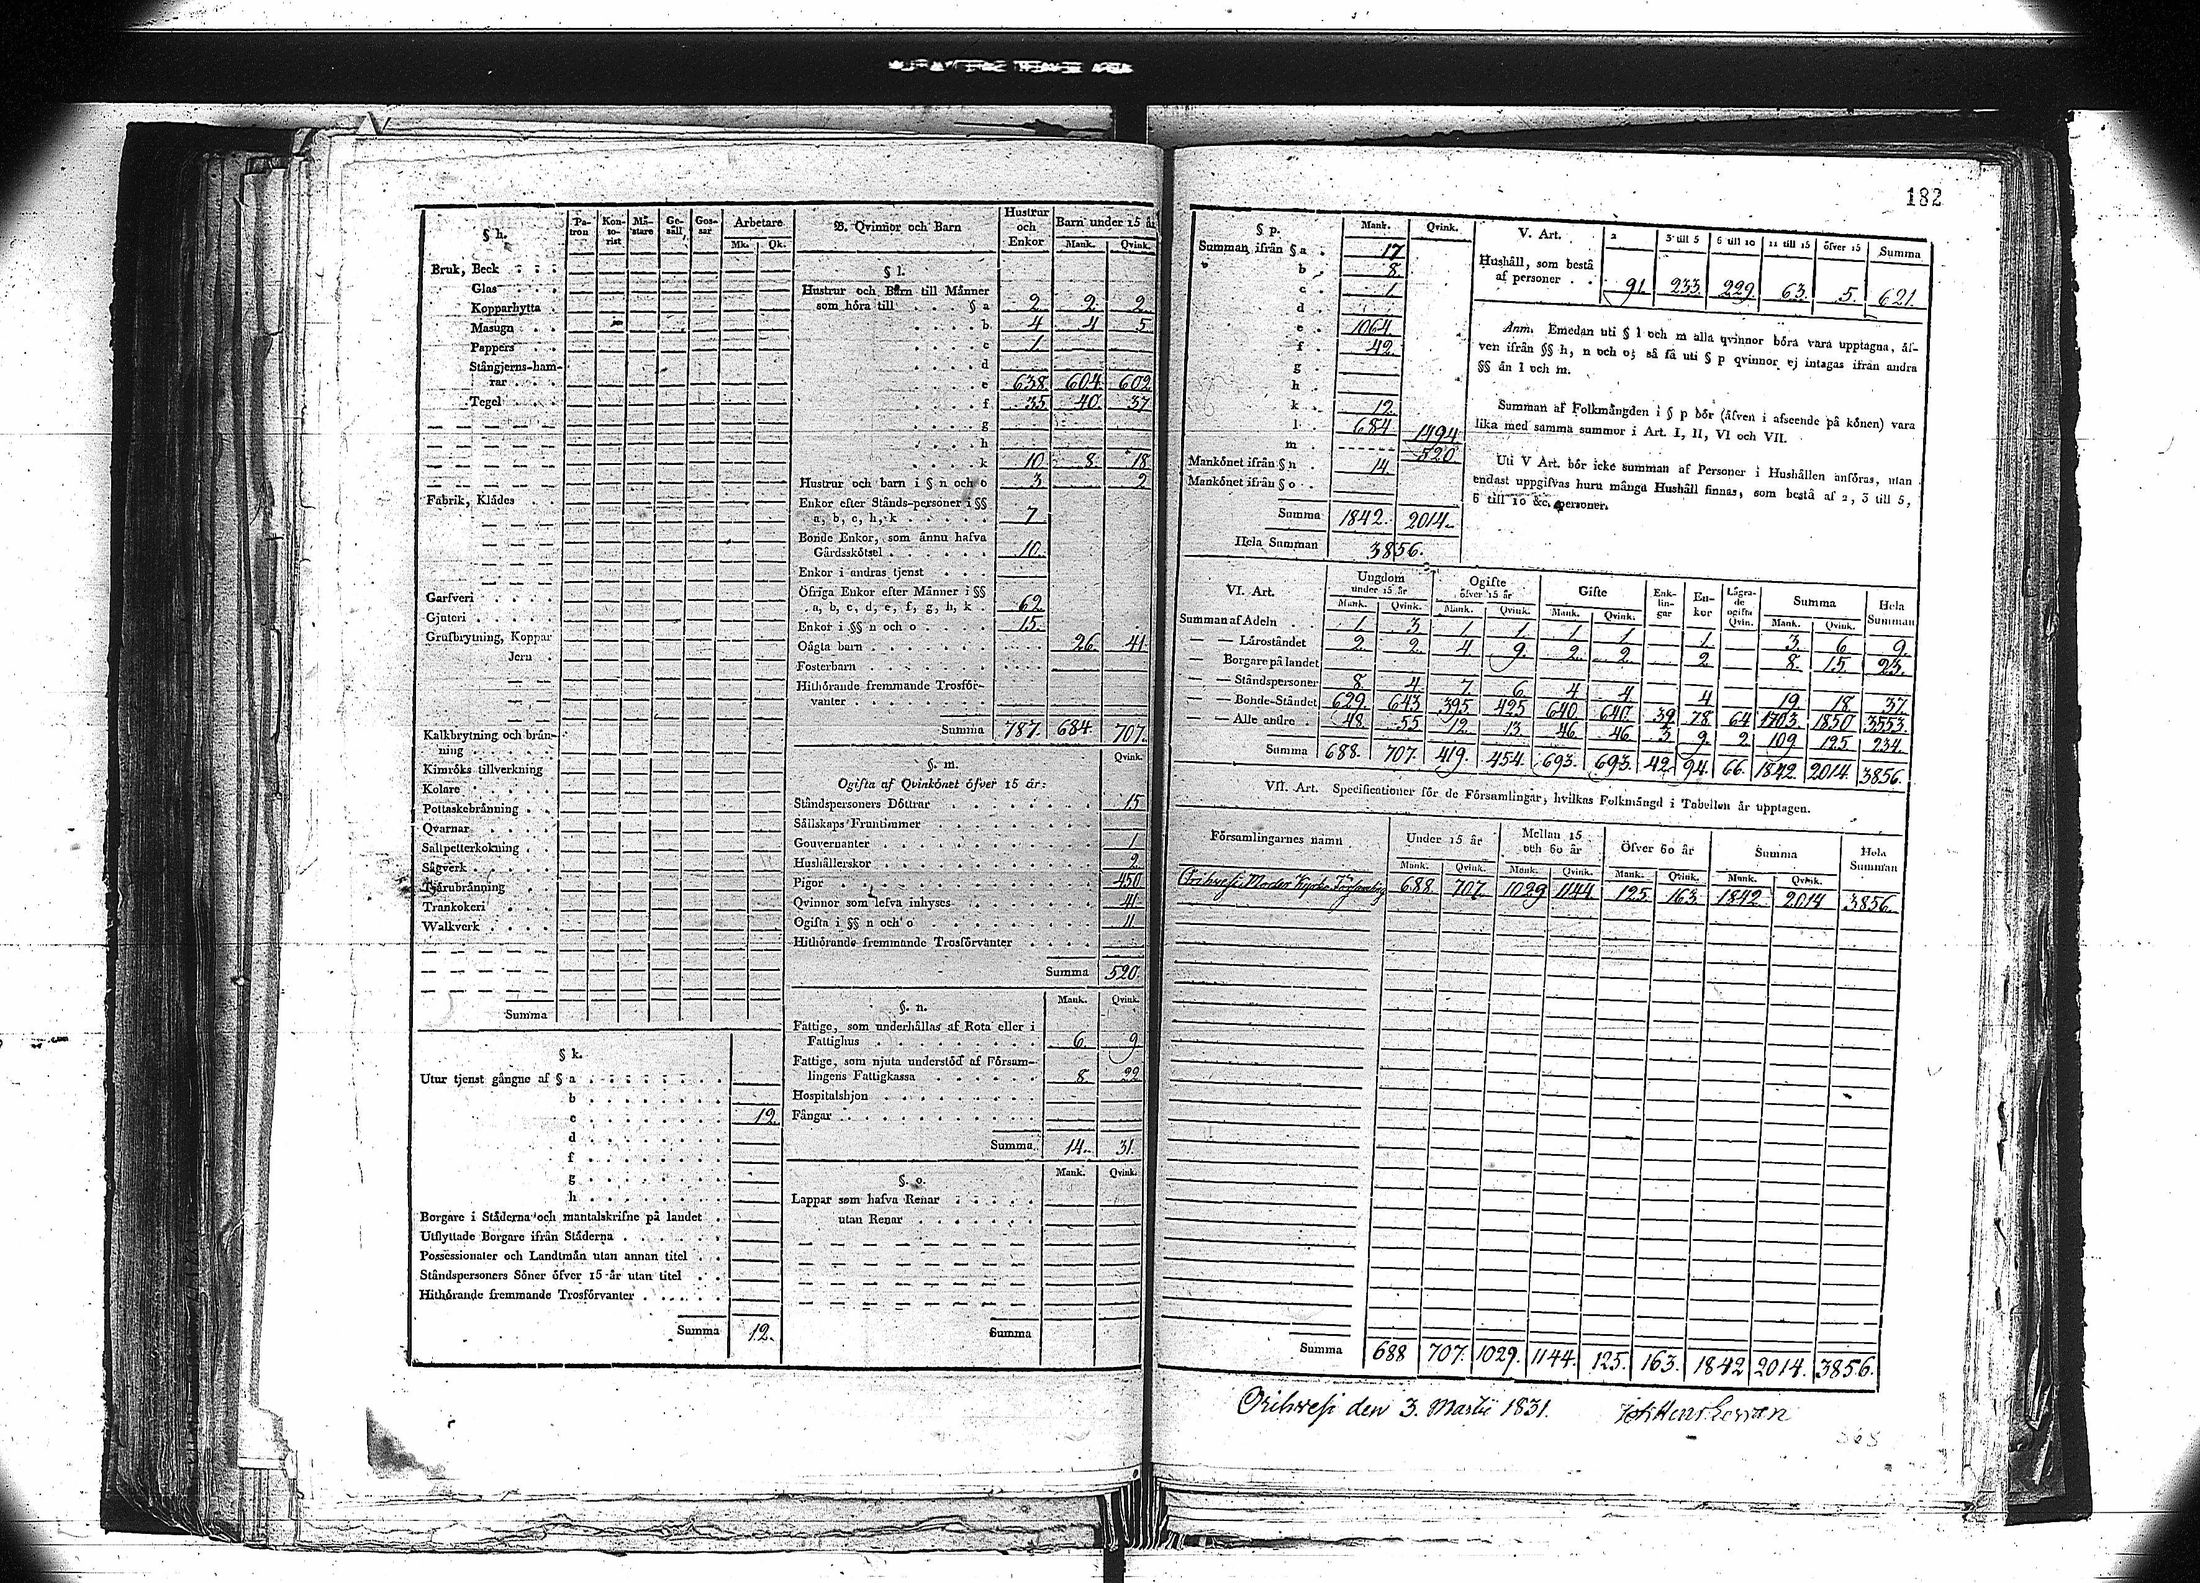 182
§ h.
Pa-tron Kon-to-rist Mä-stare Ge-säll Gos-sar Arbetare
Mk. Qk.
Bruk, Beck
Glas
Kopparhytta
Masugn
Pappers
Stångjerns-ham-
rar
Tegel
Fabrik, Klädes
Garfveri
Gjuteri
Grufbrytning, Koppar
Jern
Kalkbrytning och brän-
ning
Kimröks tillverkning
Kolare
Pottaskebränning
Qvarnar
Saltpetterkokning
Sågverk
Tjärubränning
Trankokeri
Walkverk
Summa
§ k.
Utur tjenst gångne af § a
b
c 12.
d
f
g
h
Borgare i Städerna och mantalskrifne på landet
Utflyttade Borgare ifrån Städerna
Possessionater och Landtmän utan annan titel
Ståndspersoners Söner öfver 15 år utan titel
Hithörande fremmande Trosförvanter
Summa 12.
B. Qvinnor och Barn Hustrur och Enkor Barn under 15 år
Mank. Qvink.
§ l.
Hustrur och Barn till Männer
som höra till § a 2 2 2
b 4 4 5
c 1
d
e 638 604 602
f 35 40 37
g
h
k 10 8 18
Hustrur och barn i § n och o 3 2
Enkor efter Stånds-personer i §§
a, b, c, h, k 7
Bonde Enkor, som ännu hafva
Gårdsskötsel 10.
Enkor i andras tjenst
Öfriga Enkor efter Männer i §§
a, b, c, d, e, f, g, h, k 62
Enkor i §§ n och o 15.
Oägta barn 26 41
Fosterbarn
Hithörande fremmande Trosför-
vanter
Summa 787. 684 707.
§. m. Qvink.
Ogifta af Qvinkönet öfver 15 år:
Ståndspersoners Döttrar 15
Sällskaps Fruntimmer
Gouvernanter 1
Hushållerskor 2
Pigor 450
Qvinnor som lefva inhyses 41
Ogifta i §§ n och o 11
Hithörande fremmande Trosförvanter
Summa 520
§. n. Mank. Qvink.
Fattige, som underhållas af Rota eller i
Fattighus 6 9
Fattige, som njuta understöd af Försam-
lingens Fattigkassa 8 22
Hospitalshjon
Fångar
Summa 14. 31.
§. o. Mank. Qvink.
Lappar som hafva Renar
utan Renar
Summa
§ p. Mank. Qvink.
Summan ifrån § a 17
b 8
c 1
d
e 1064
f 42
g
h
k 12
l 684 1494
m 520
Mankönet ifrån § n 14
Mankönet ifrån § o
Summa 1842. 2014.
Hela Summan 3856.
V. Art. 2 3 till 5 6 till 10 11 till 15 öfver 15 Summa
Hushåll, som bestå
af personer 91 233 229 63 5 621
Anm. Emedan uti § l och m alla qvinnor böra vara upptagna, äf-
ven ifrån §§ h, n och o; så få uti § p qvinnor ej intagas ifrån andra
§§ än l och m.
Summan af Folkmängden i § p bör (äfven i afseende på könen) vara
lika med samma summor i Art. I, II, VI och VII.
Uti V Art. bör icke summan af Personer i Hushållen anföras, utan
endast uppgifvas huru många Hushåll finnas, som bestå af 2, 3 till 5,
6 till 10 &c. personer.
VI. Art. Ungdom under 15 år Ogifte öfver 15 år Gifte Enk-lin-gar En-kor Lägra-de ogifta Qvin. Summa Hela Summan
Mank. Qvink. Mank. Qvink. Mank. Qvink. Mank. Qvink.
Summan af Adeln 1 3 1 1 1 1 1 3 6 9
— — Läroståndet 2 2 4 9 2 2 2 8 15 23
— Borgare på landet
— — Ståndspersoner 8 4 7 6 4 4 4 19 18 37
— — Bonde-Ståndet 629 643 395 425 640 640 39 78 64 1703 1850 3553
— — Alle andre 48 55 12 13 46 46 3 9 2 109 125 234
Summa 688. 707. 419. 454. 693. 693. 42. 94. 66. 1842 2014. 3856.
VII. Art. Specificationer för de Församlingar, hvilkas Folkmängd i Tabellen är upptagen.
Församlingarnes namn Under 15 år Mellan 15 och 60 år Öfver 60 år Summa Hela Summan
Mank. Qvink. Mank. Qvink. Mank. Qvink. Mank. Qvink.
Orihvesi Moder Kyrko Församling 688 707 1029 1144 125 163 1842 2014 3856
Summa 688 707. 1029. 1144. 125. 163. 1842 2014. 3856.
Orihvesi den 3. Martii 1831.